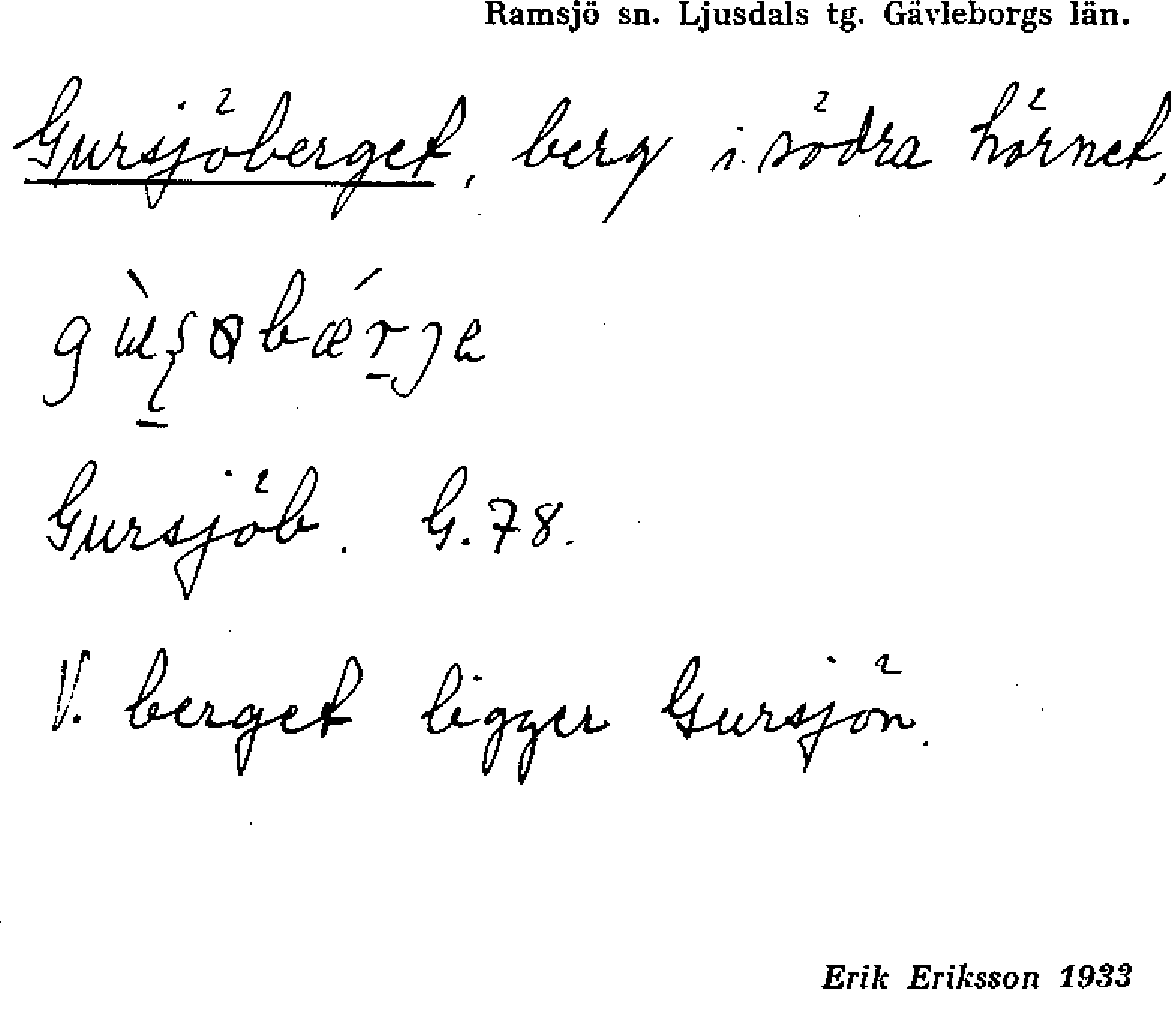 Ramsjö sn. Ljusdals tg. Gävleborgs län.
Gursjöberget, berg i södra hörnet,
Gursjöb. G. 78.
V. berget ligger Gursjön.
Erik Eriksson 1933